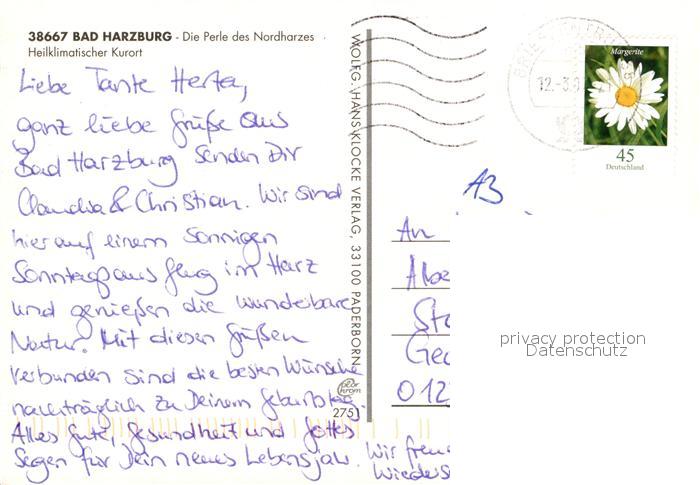 38667 BAD HARZBURG - Die Perle des Nordharzes
Heilklimatischer Kurort
Liebe Tante Herta,
ganz liebe Grüße aus
Bad Harzburg senden Dir
Claudia & Christian. Wir sind
hier auf einem sonnigen
Sonntagsausflug im Harz
und genießen die wunderbare
Natur. Mit diesen Grüßen
verbunden sind die besten Wünsche
nachträglich zu Deinem Geburtstag.
Alles Gute, Gesundheit und Gottes
Segen für Dein neues Lebensjahr.
Wir freu
Wieders
WOLFG. HANS KLOCKE VERLAG, 33100 PADERBORN
2751
12.-3.
Margerite
45
Deutschland
A3
An
Sto
012
privacy protection
Datenschutz